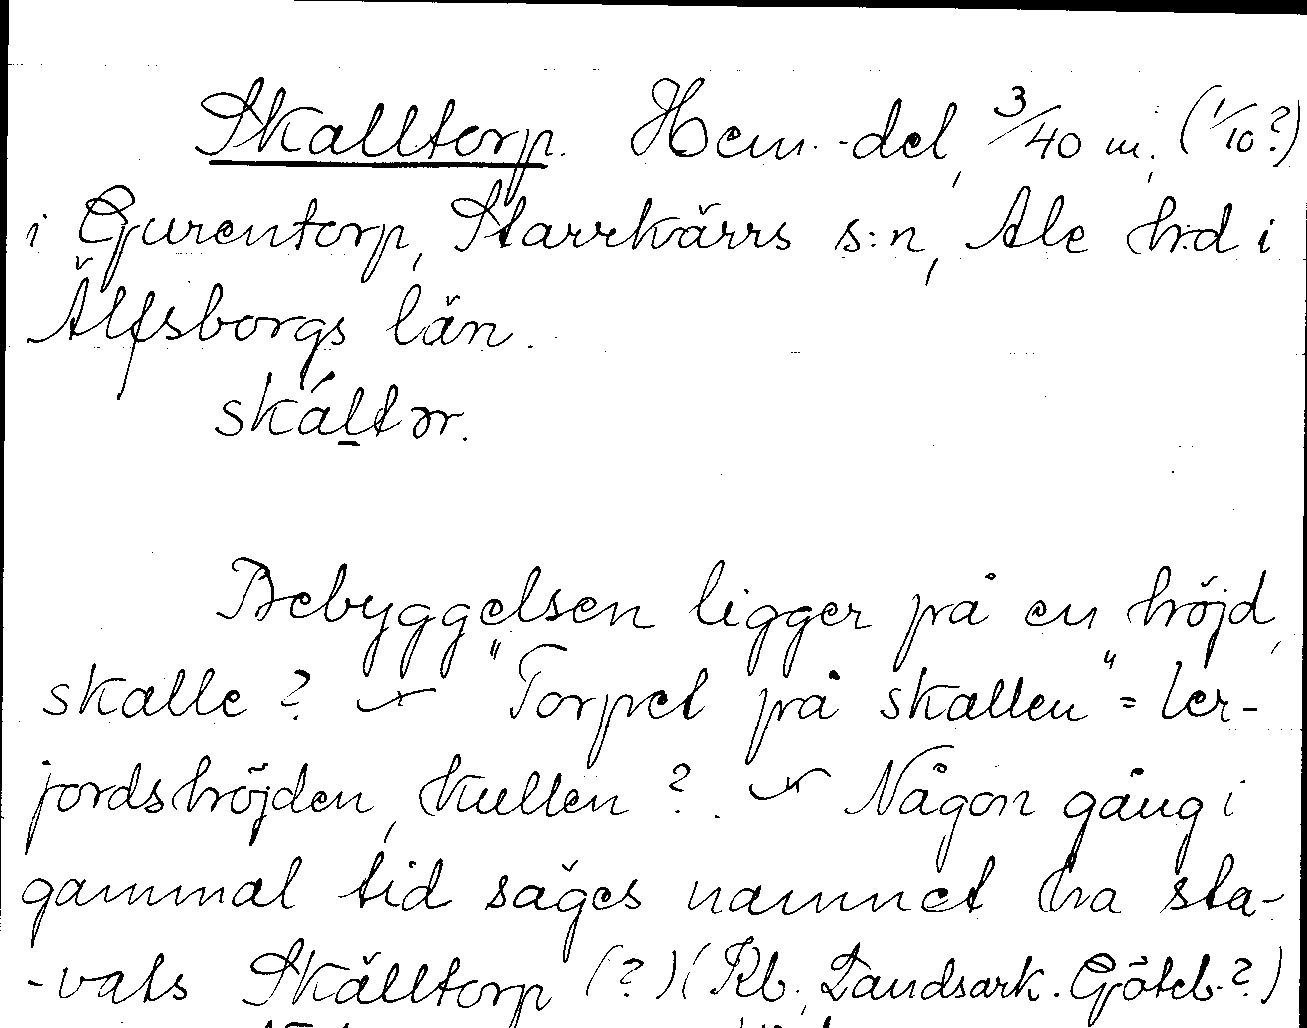 Skalltorp. Hem.-del, 3/40 m, (1/10?)
i Gjurentorp, Starrkärrs s:n, Ale h:d i
Älfsborgs län.
skáltər.
Bebyggelsen ligger på en höjd,
skalle? — "Torpet på skallen" = ler-
jordshöjden, kullen?. — Någon gång i
gammal tid säges namnet ha sta-
-vats Skälltorp (?) (Kb. Landsark. Göteb.?)